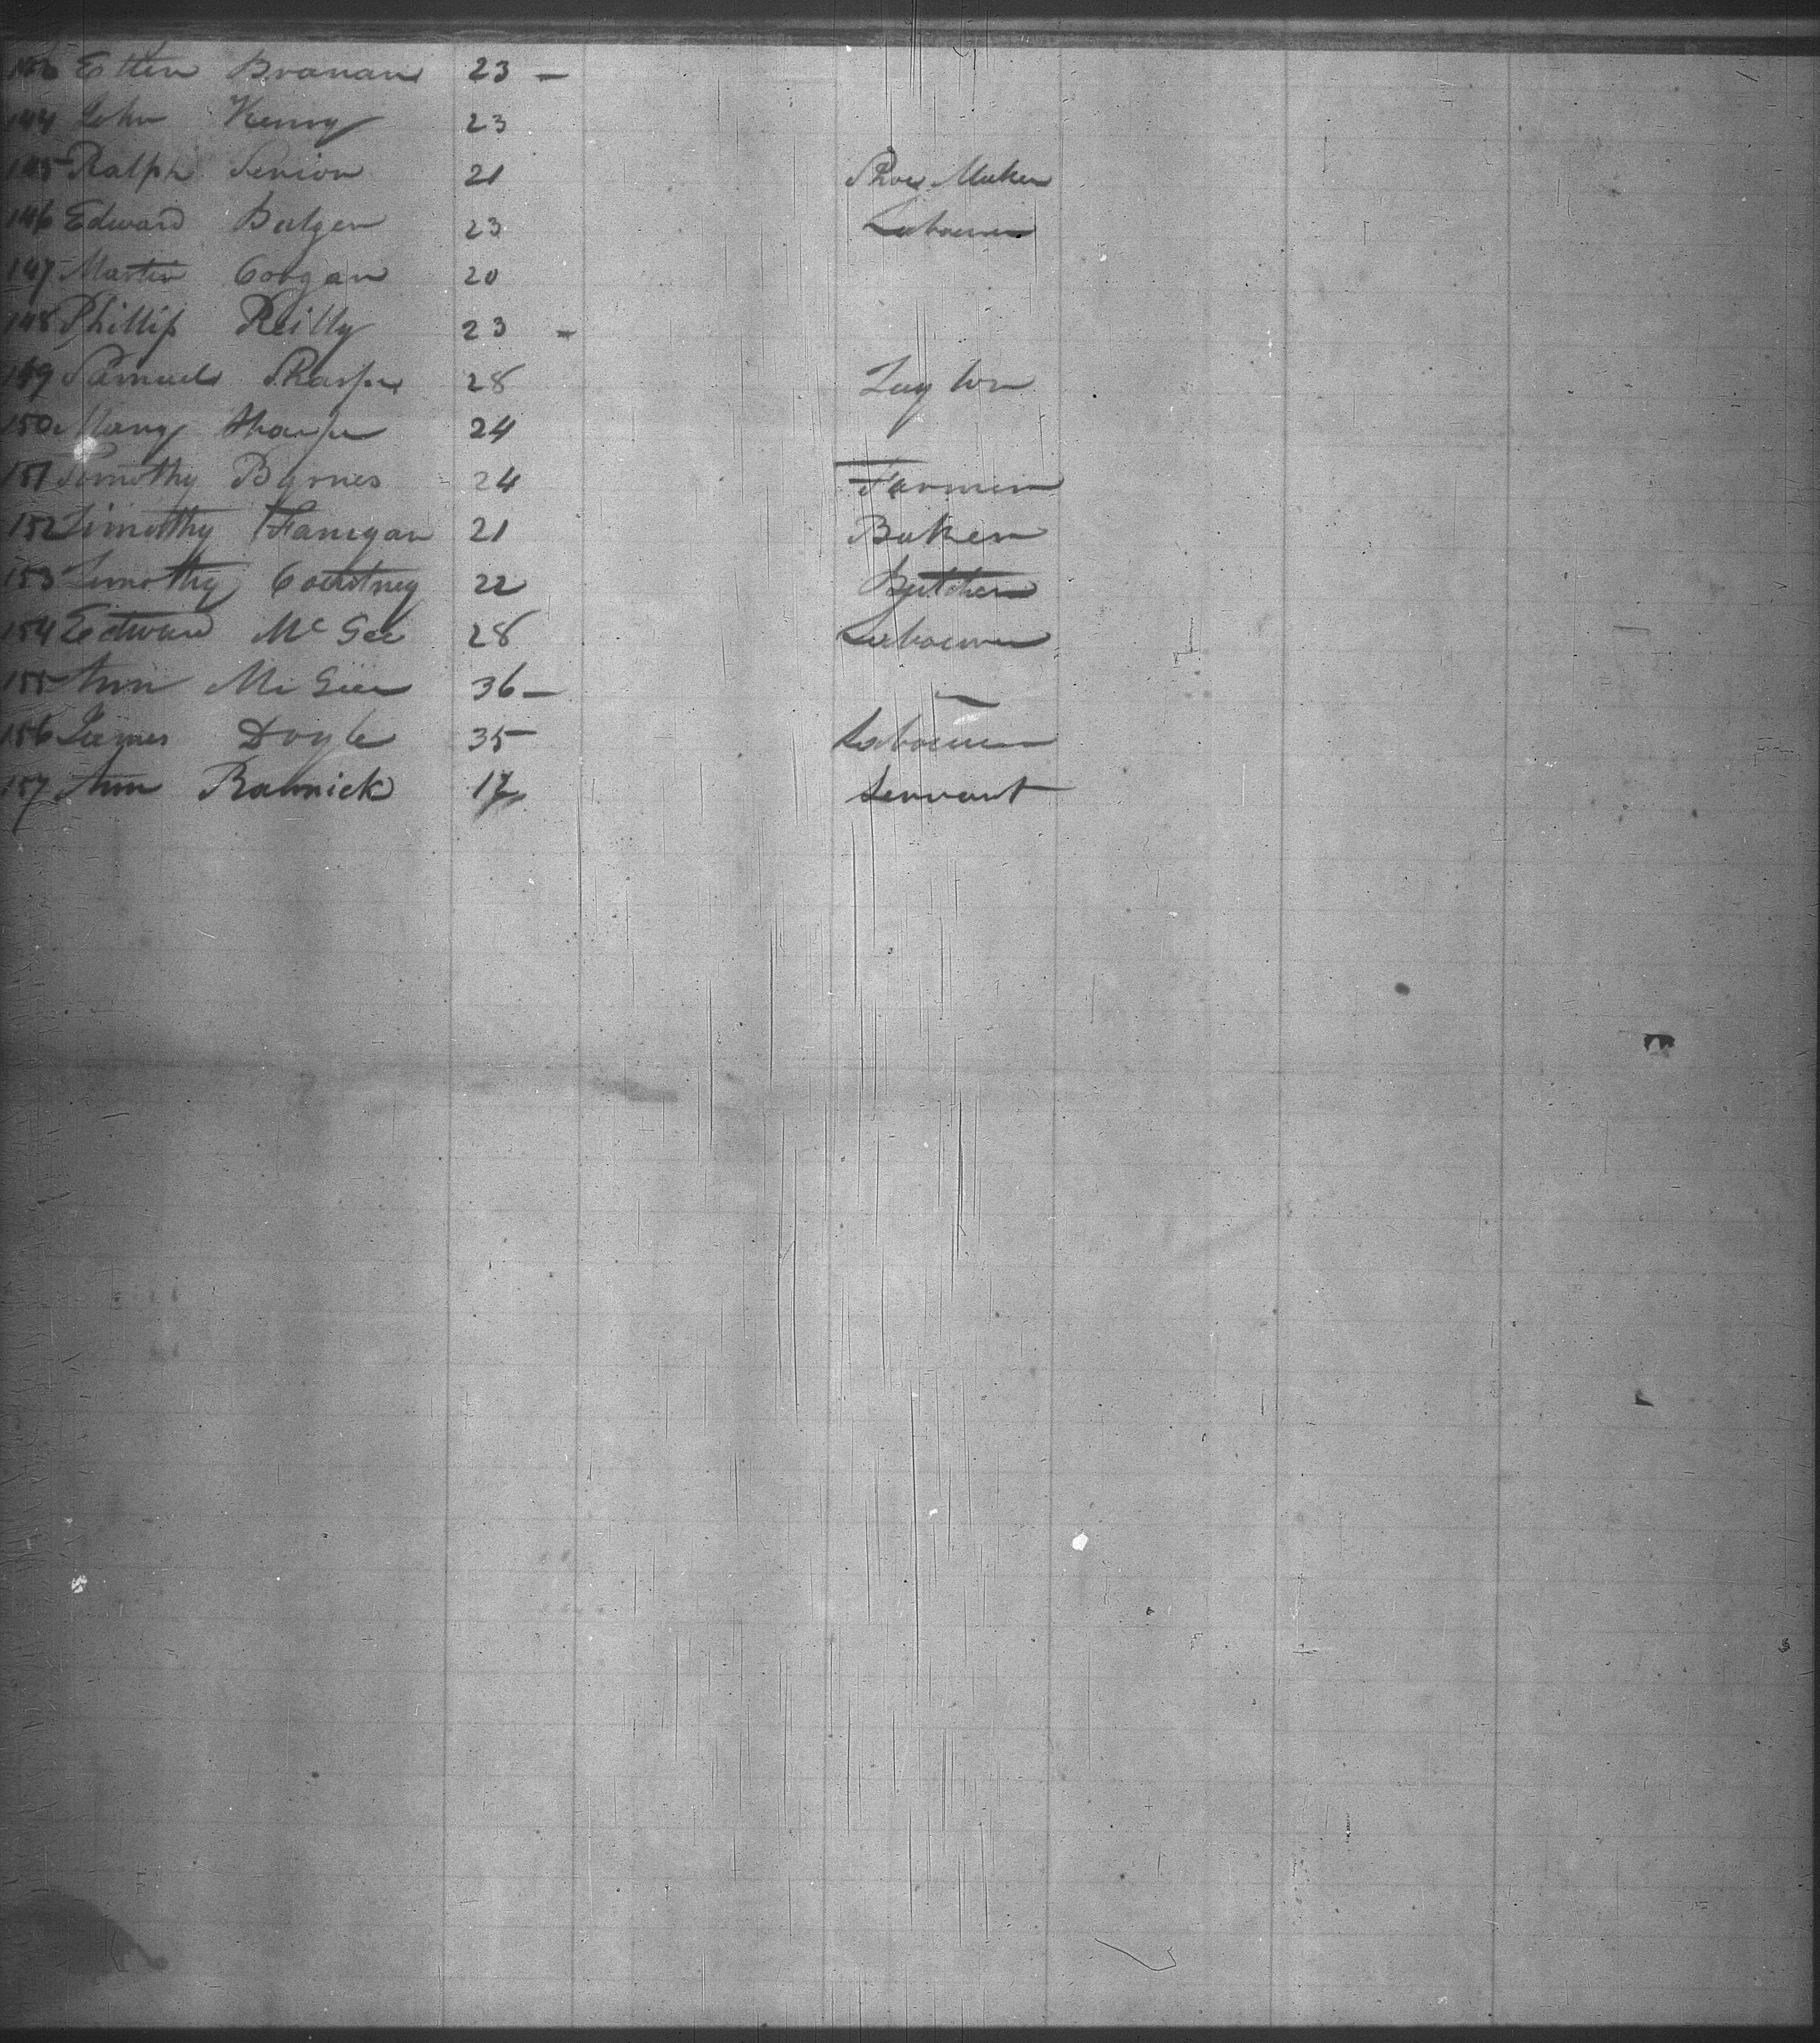 143 Ellen Branan 23 —
144 John Kenny 23
145 Ralph Senior 21 Shoe Maker
146 Edward Balger 23 Labourer
147 Martin Coogan 20
148 Phillip Reilly 23 -
149 Samuel Sharpe 28 Taylor
150 Mary Sharpe 24
151 Timothy Byrnes 24 Farmer
152 Timothy Flanegan 21 Baker
153 Timothy Courtney 22 Butcher
154 Edward McGee 28 Labourer
155 Ann McGee 36 — —
156 James Doyle 35 Labourer
157 Ann 17 Servant